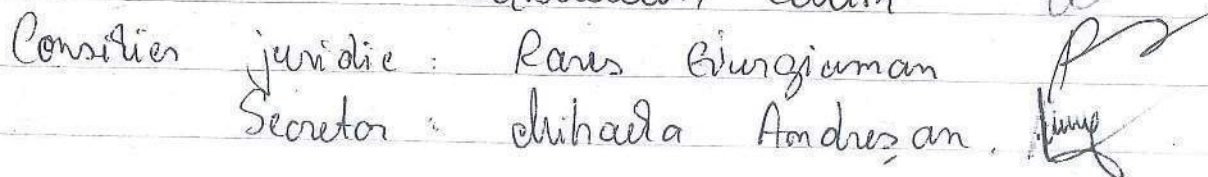 Consilier juridic : Rares Giurgiuman
Secretar : Mihaela Andreșan.